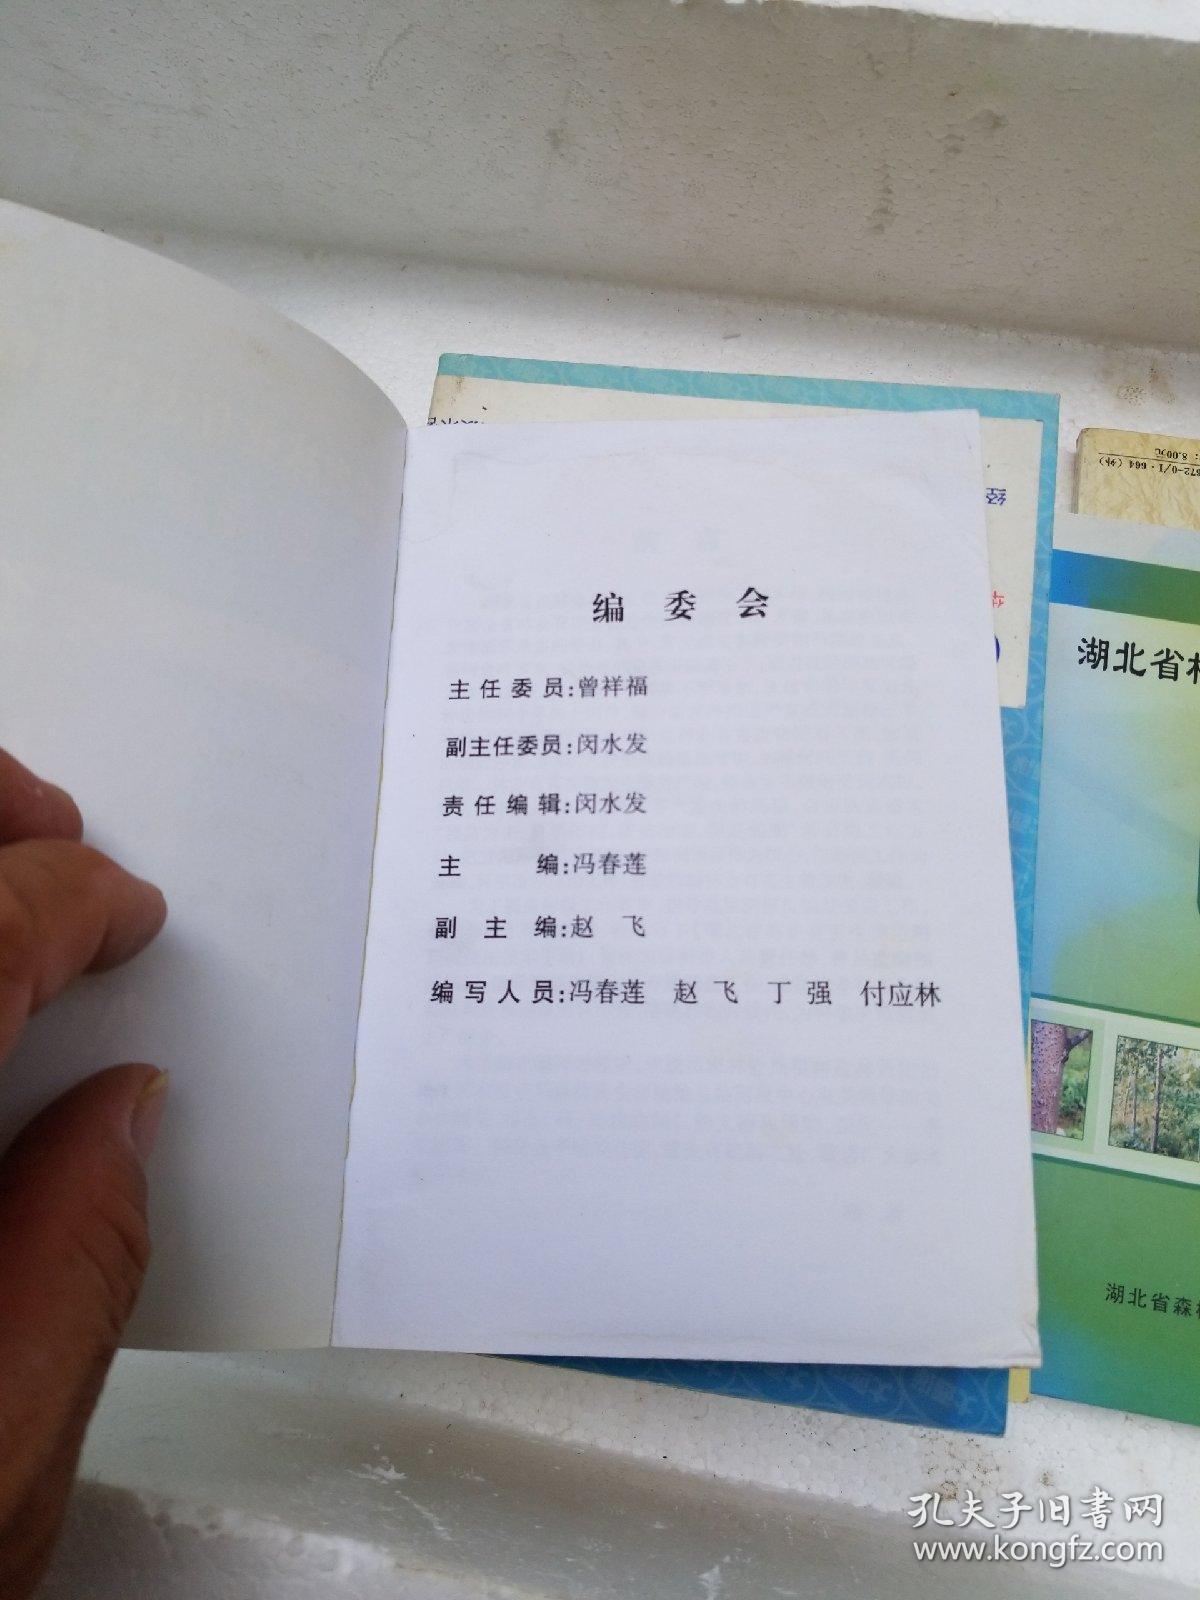 编 委 会
主任委员:曾祥福
副主任委员:闵水发
责任编辑:闵水发
主 编:冯春莲
副 主 编:赵 飞
编写人员:冯春莲 赵 飞 丁 强 付应林
672-0/I·664(外)
:8.00元
经
湖北省
湖北省森
孔夫子旧书网
www.kongfz.com